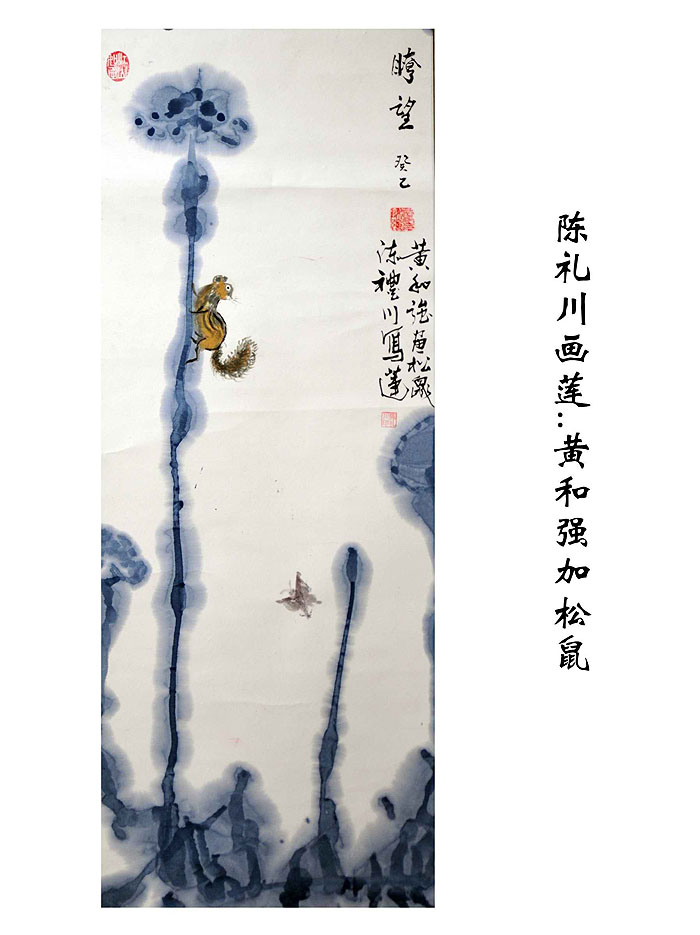 陈礼川画莲：黄和强加松鼠
望
癸乙
黄和强画松鼠
陈禮川寫蓮